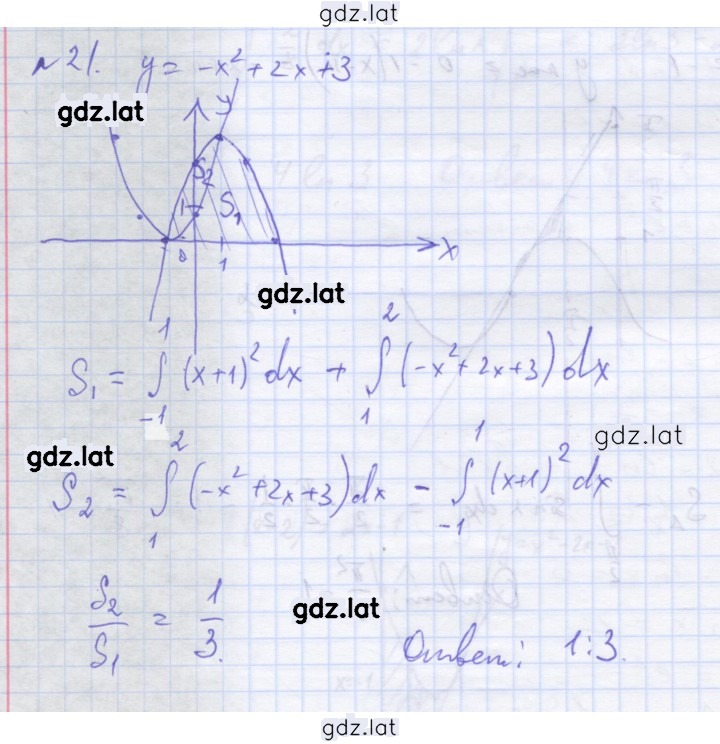 gdz.lat
№21. y = -x² + 2x + 3
gdz.lat
y
S₂
1
S₁
0
1
x
gdz.lat
S₁ = ∫₋₁¹ (x+1)² dx + ∫₁² (-x² + 2x + 3) dx
gdz.lat
gdz.lat
S₂ = ∫₁² (-x² + 2x + 3) dx - ∫₋₁¹ (x+1)² dx
S₂/S₁ = 1/3.
gdz.lat
Ответ: 1:3.
gdz.lat